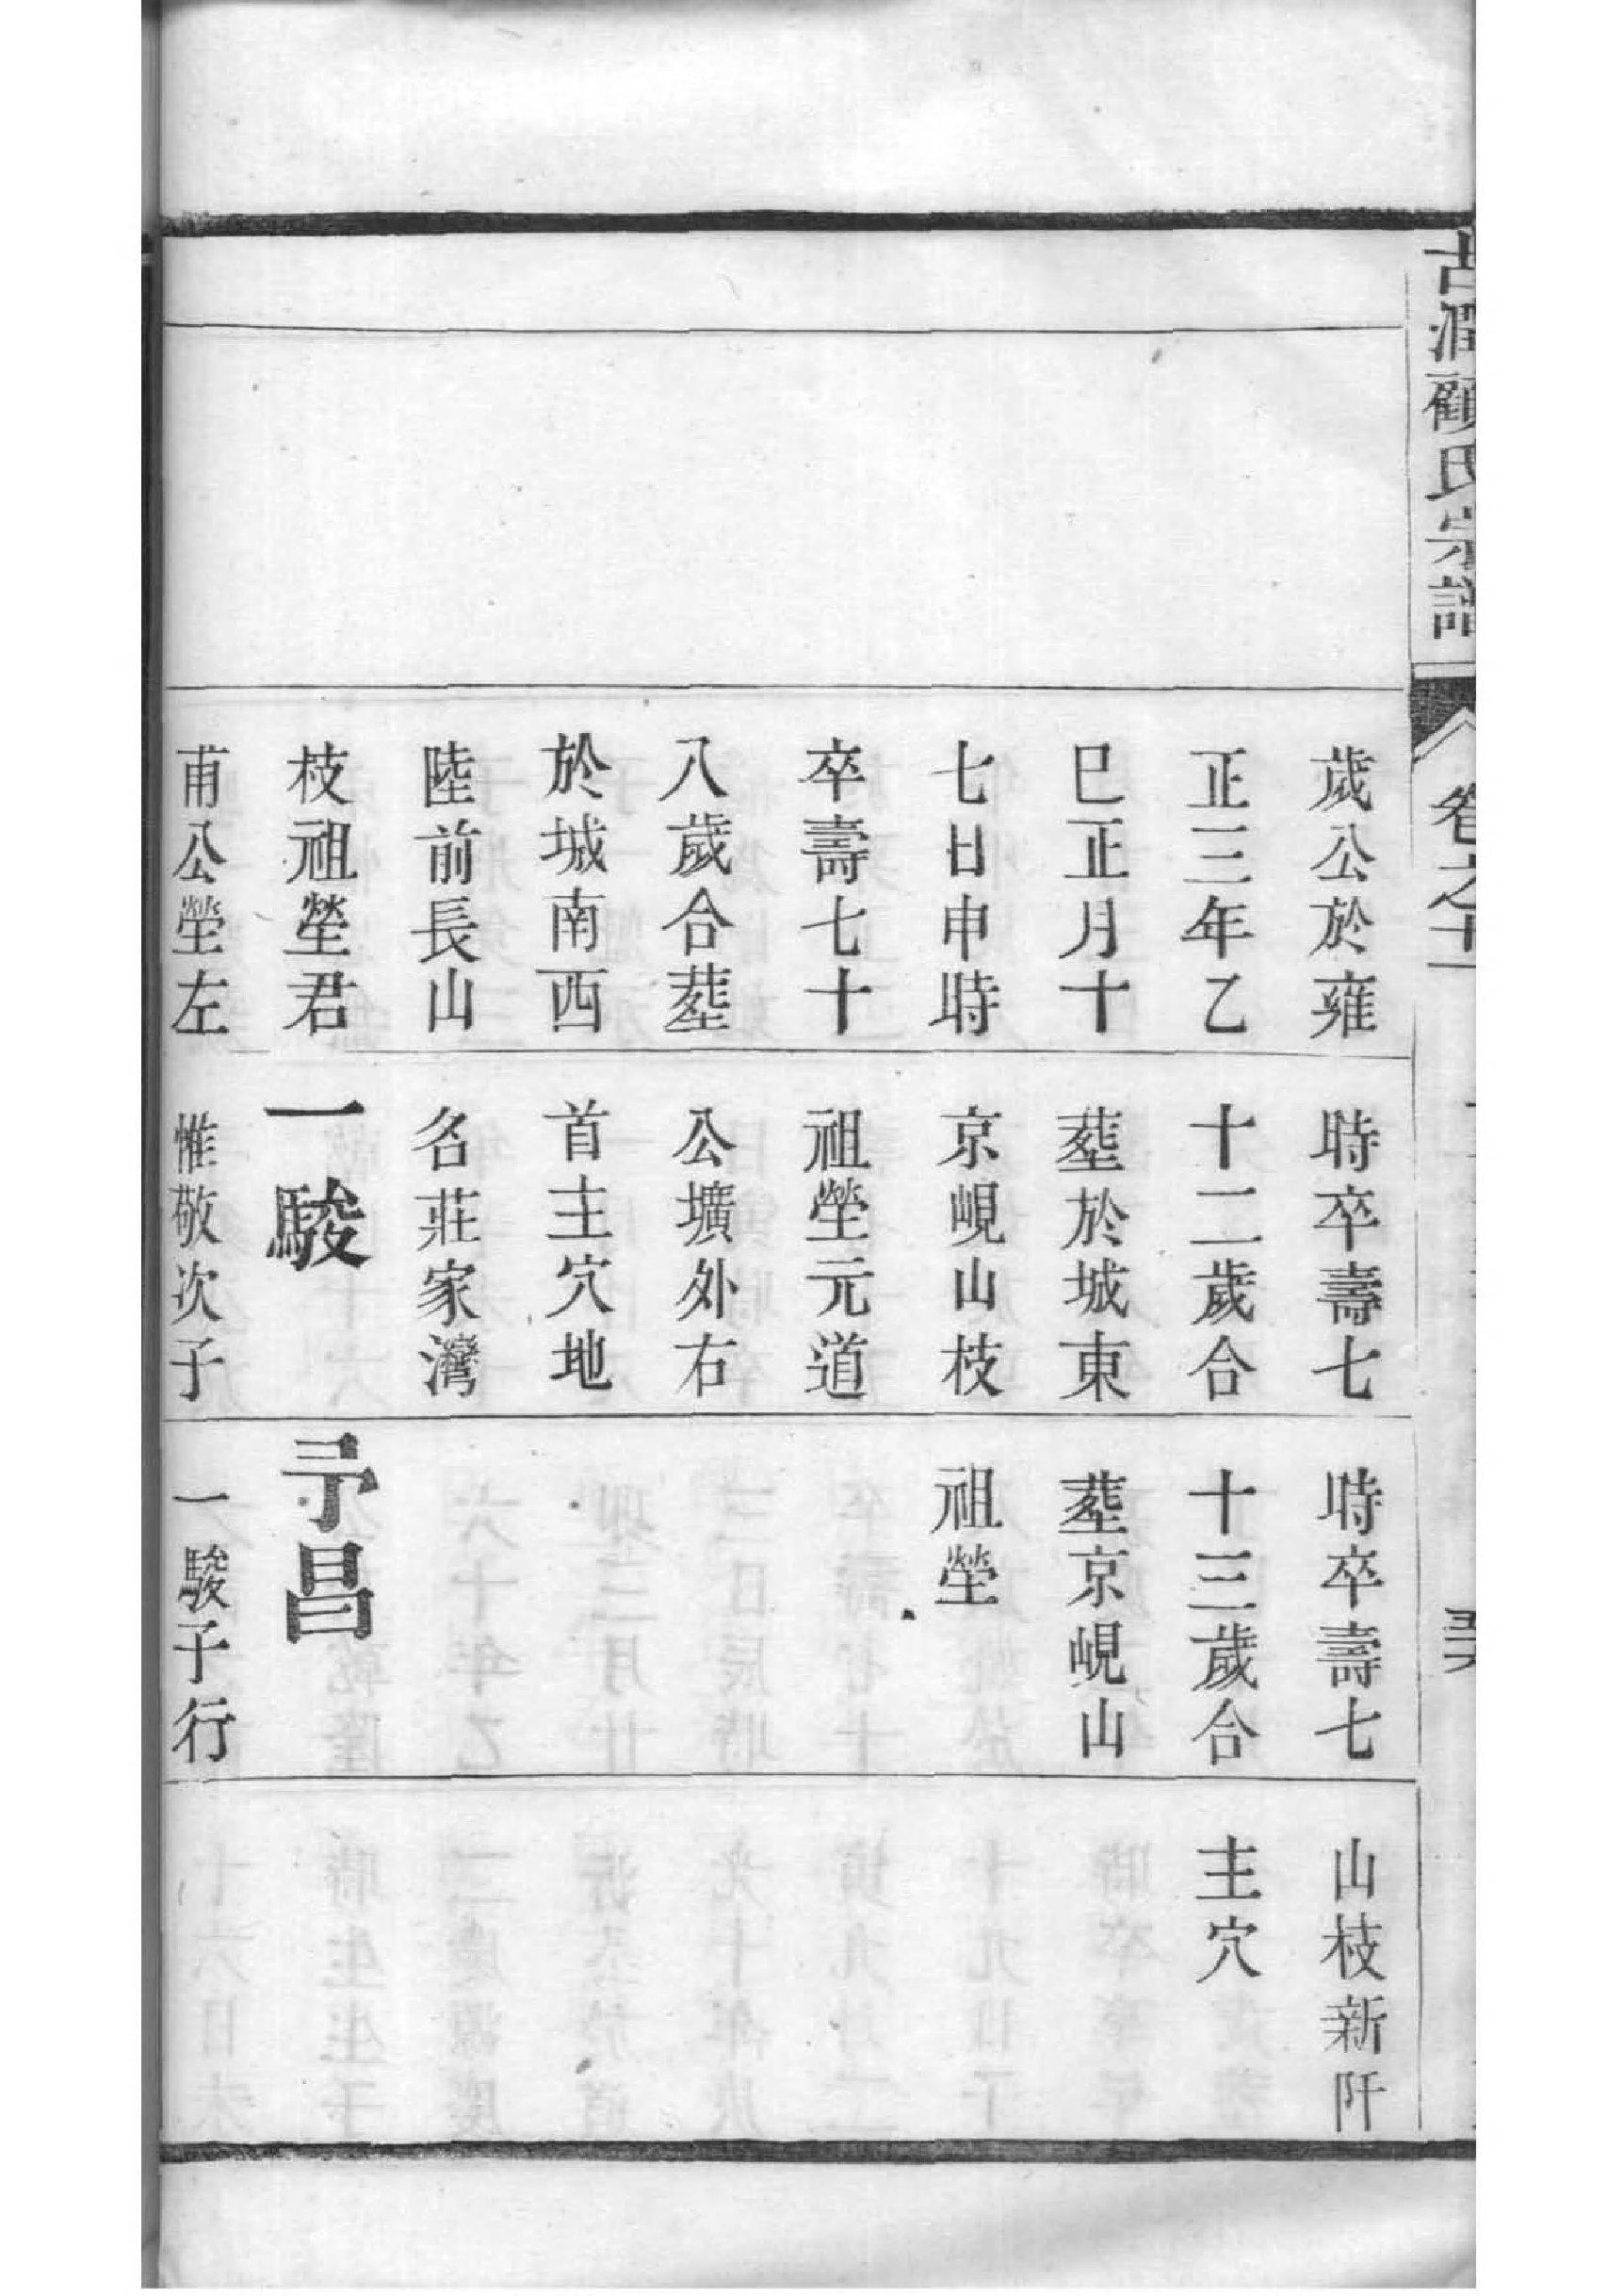 古潤顧氏宗譜
卷之十一
歲公於雍
正三年乙
巳正月十
七日申時
卒壽七十
八歲合塟
於城南西
陸前長山
枝祖塋君
甫公塋左
時卒壽七
十二歲合
塟於城東
京峴山枝
祖塋元道
公壙外右
首主穴地
名莊家灣
一駿
惟敬次子
時卒壽七
十三歲合
塟京峴山
祖塋
予昌
一駿子行
山枝新阡
主穴